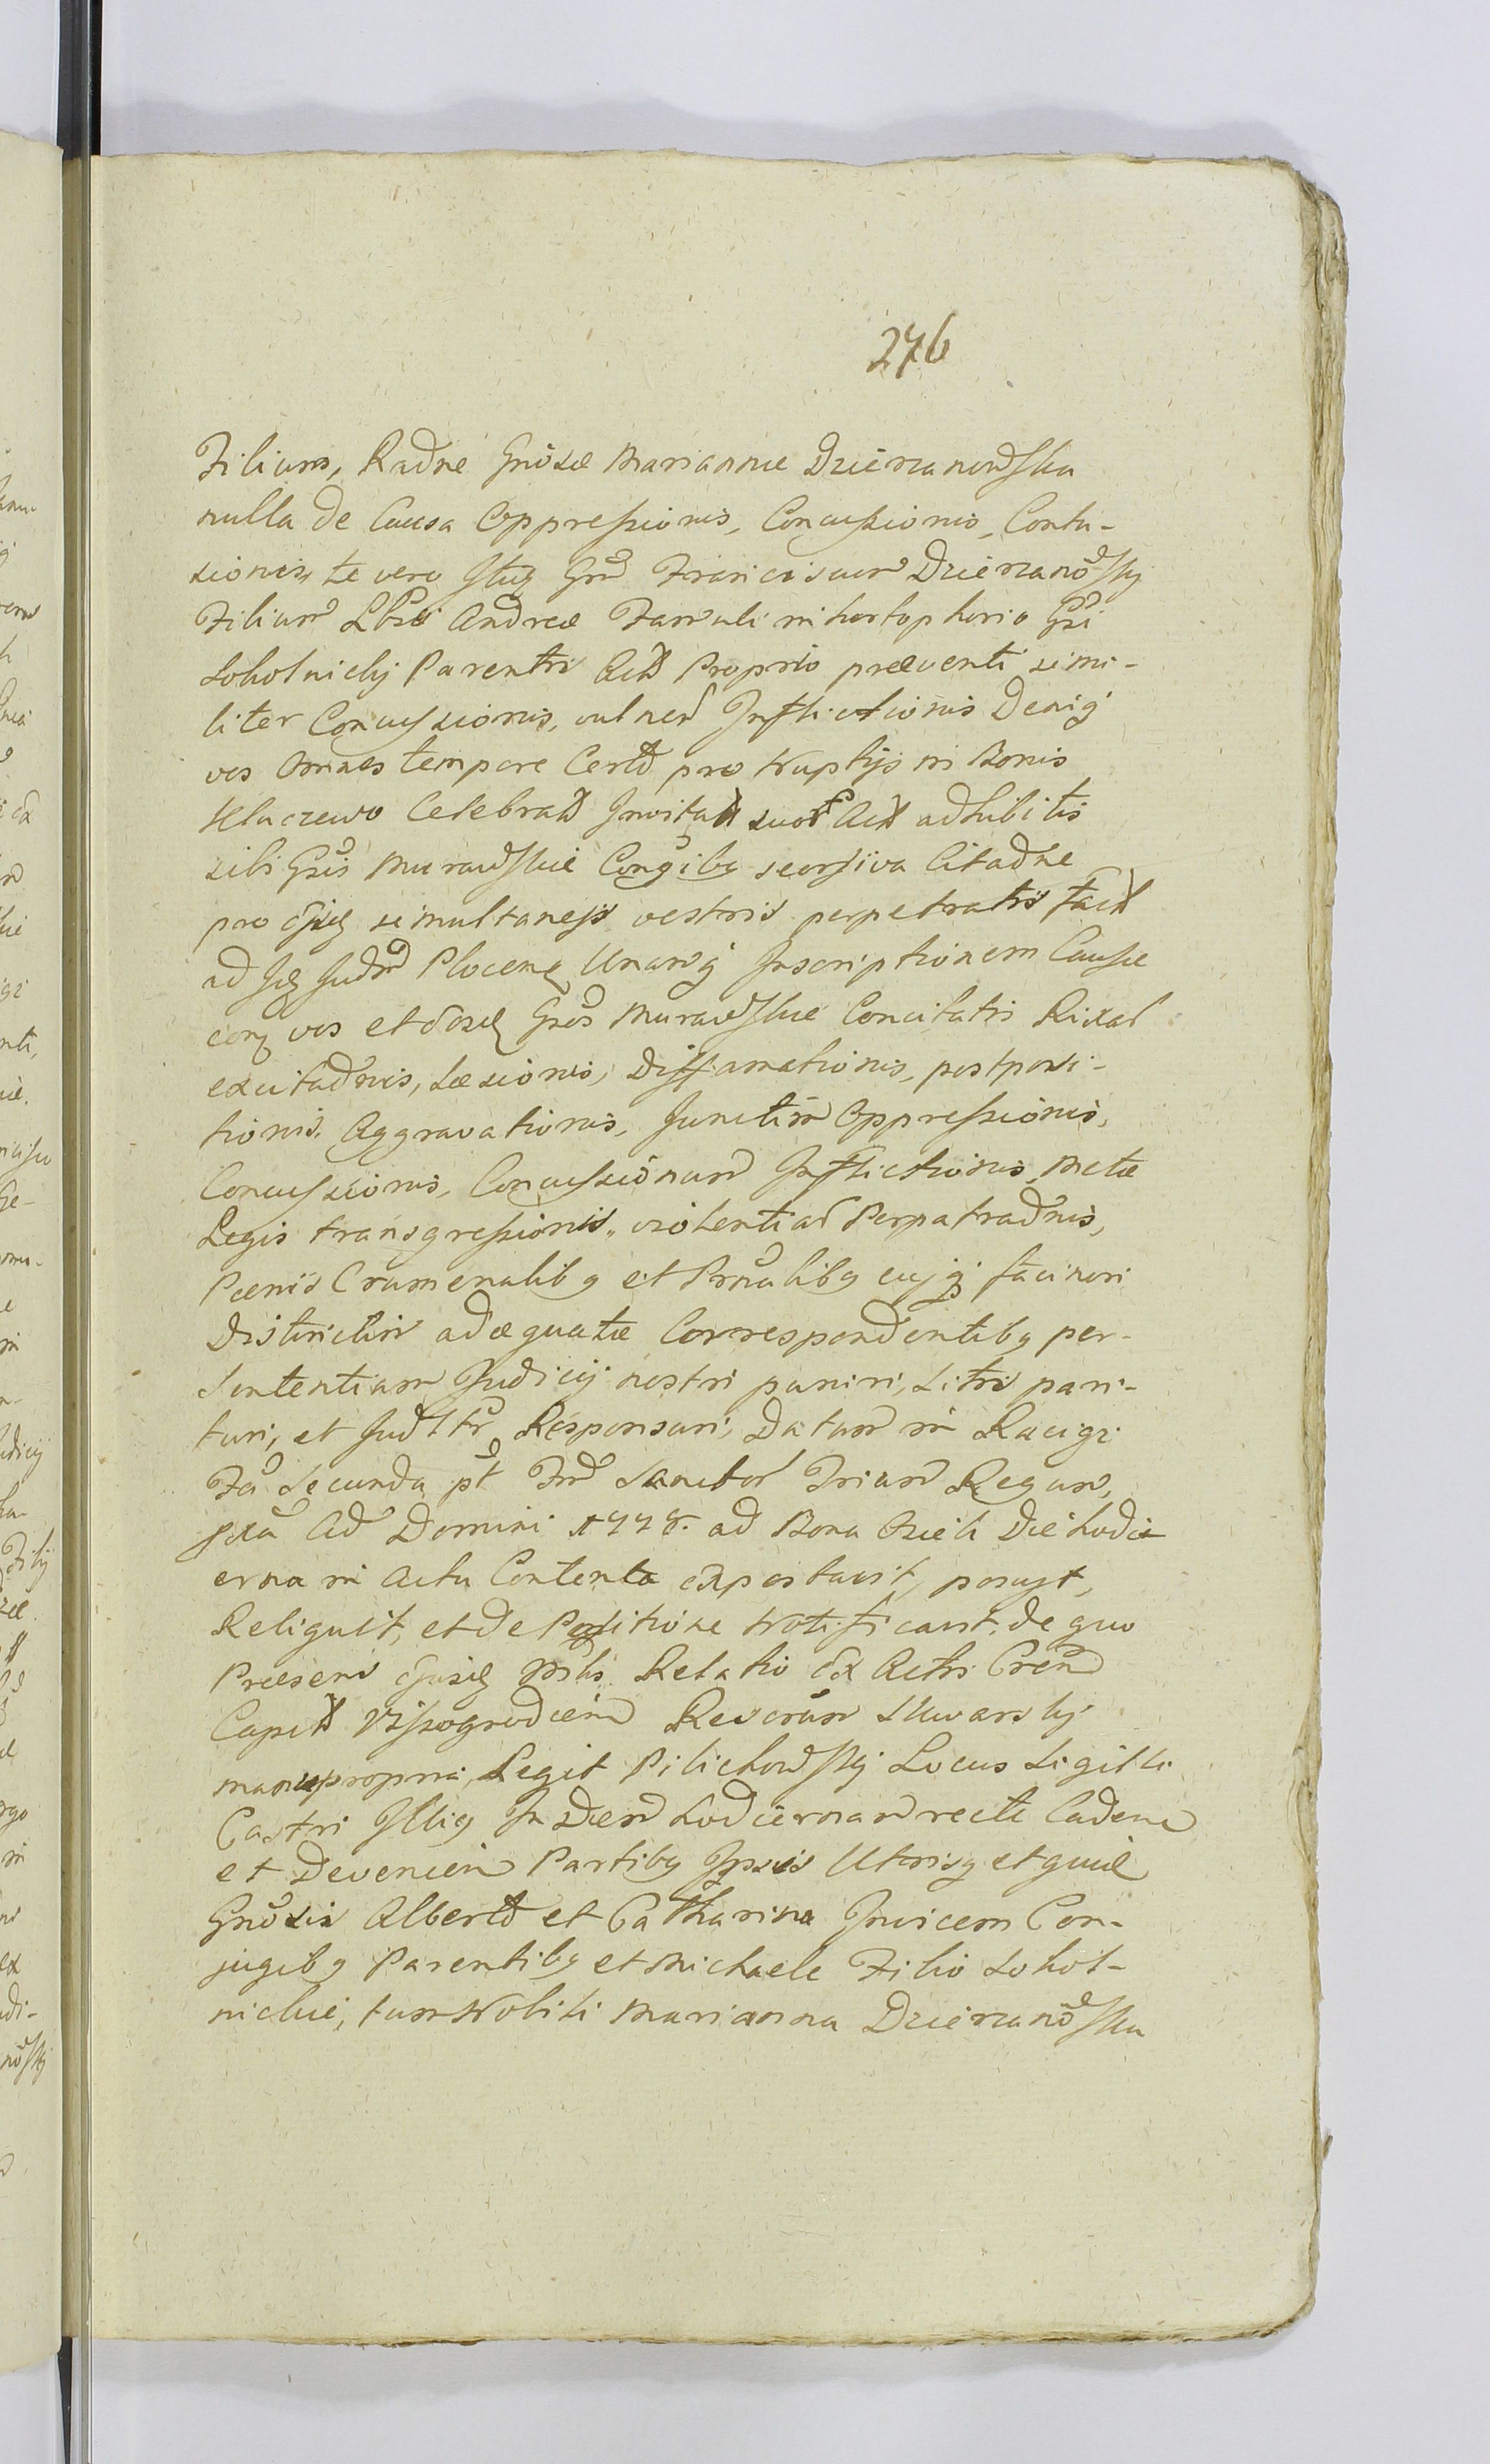 276
Filium, Raðne Gnösæ Mariannæ Dzierzanowska
nulla de Causa Oppressionis, Concussionis, Contu-
sionis, te vero Franciscum Dzierzanöski
Filium Andreæ Famuli in hortophorio
Sokolnicky Parentis Proprio præventi simi-
liter Concussionis, vulner Inflictionis Deniq
vos Omnes tempore Certo pro Nuptijs in Bonis
Kluczewo Celebrat Invitat suor adhibitis
sibi Murawskie seorsiva Citaðne
pro simultaneis vestris perpetratis fact
ad Plocen Unamq Inscriptionem Causæ
vos et Murawskie Concitatis Rixar
excitaðnis, Læsionis, Diffamationis, postposi-
tionis, Aggravationis, Junctim Oppressionis,
Concussionis, Concussionum Inflictionis, Metæ
Legis transgressionis, violentiar Perpatraðnis,
Pœnis Crumenalibg et cujgj facinori
Districtim adæquatæ Correspondentibg per-
Sententiam Judicij nostri puniri, Litis pari-
turi, et Responsuri, Datum in Raciąz
Fa Secunda pt Sanctor Trium Regum,
Ao Domini 1778. ad Bona Die hodi-
erna in Actu Contenta exportavit, posuit,
Reliquit, et de Positione Notificavit, de quo
Præsens Relatio Ex Actis
Capit Wissogrodien
manupropria, Legit Pilichowski Locus Sigilli
Castri Illig In Diem hodiernam recte Caden
et Devenien Partibg Ipsis Utrisq et quidē
Gnösis Alberto et Catharina Invicem Con-
jugibg Parentibg et Michaele Filio Sokol-
nickie, tum Nobili Marianna Dzierzanöska